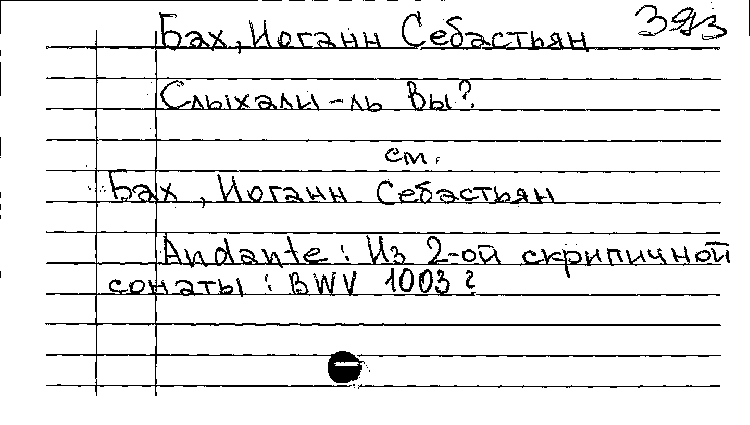 Бах, Иоганн Себастьян
Слыхали-ль Вы?
см.
Бах, Иоганн Себастьян
Andante: Из 2-ой скрипичной
сонаты: BWV 1003?